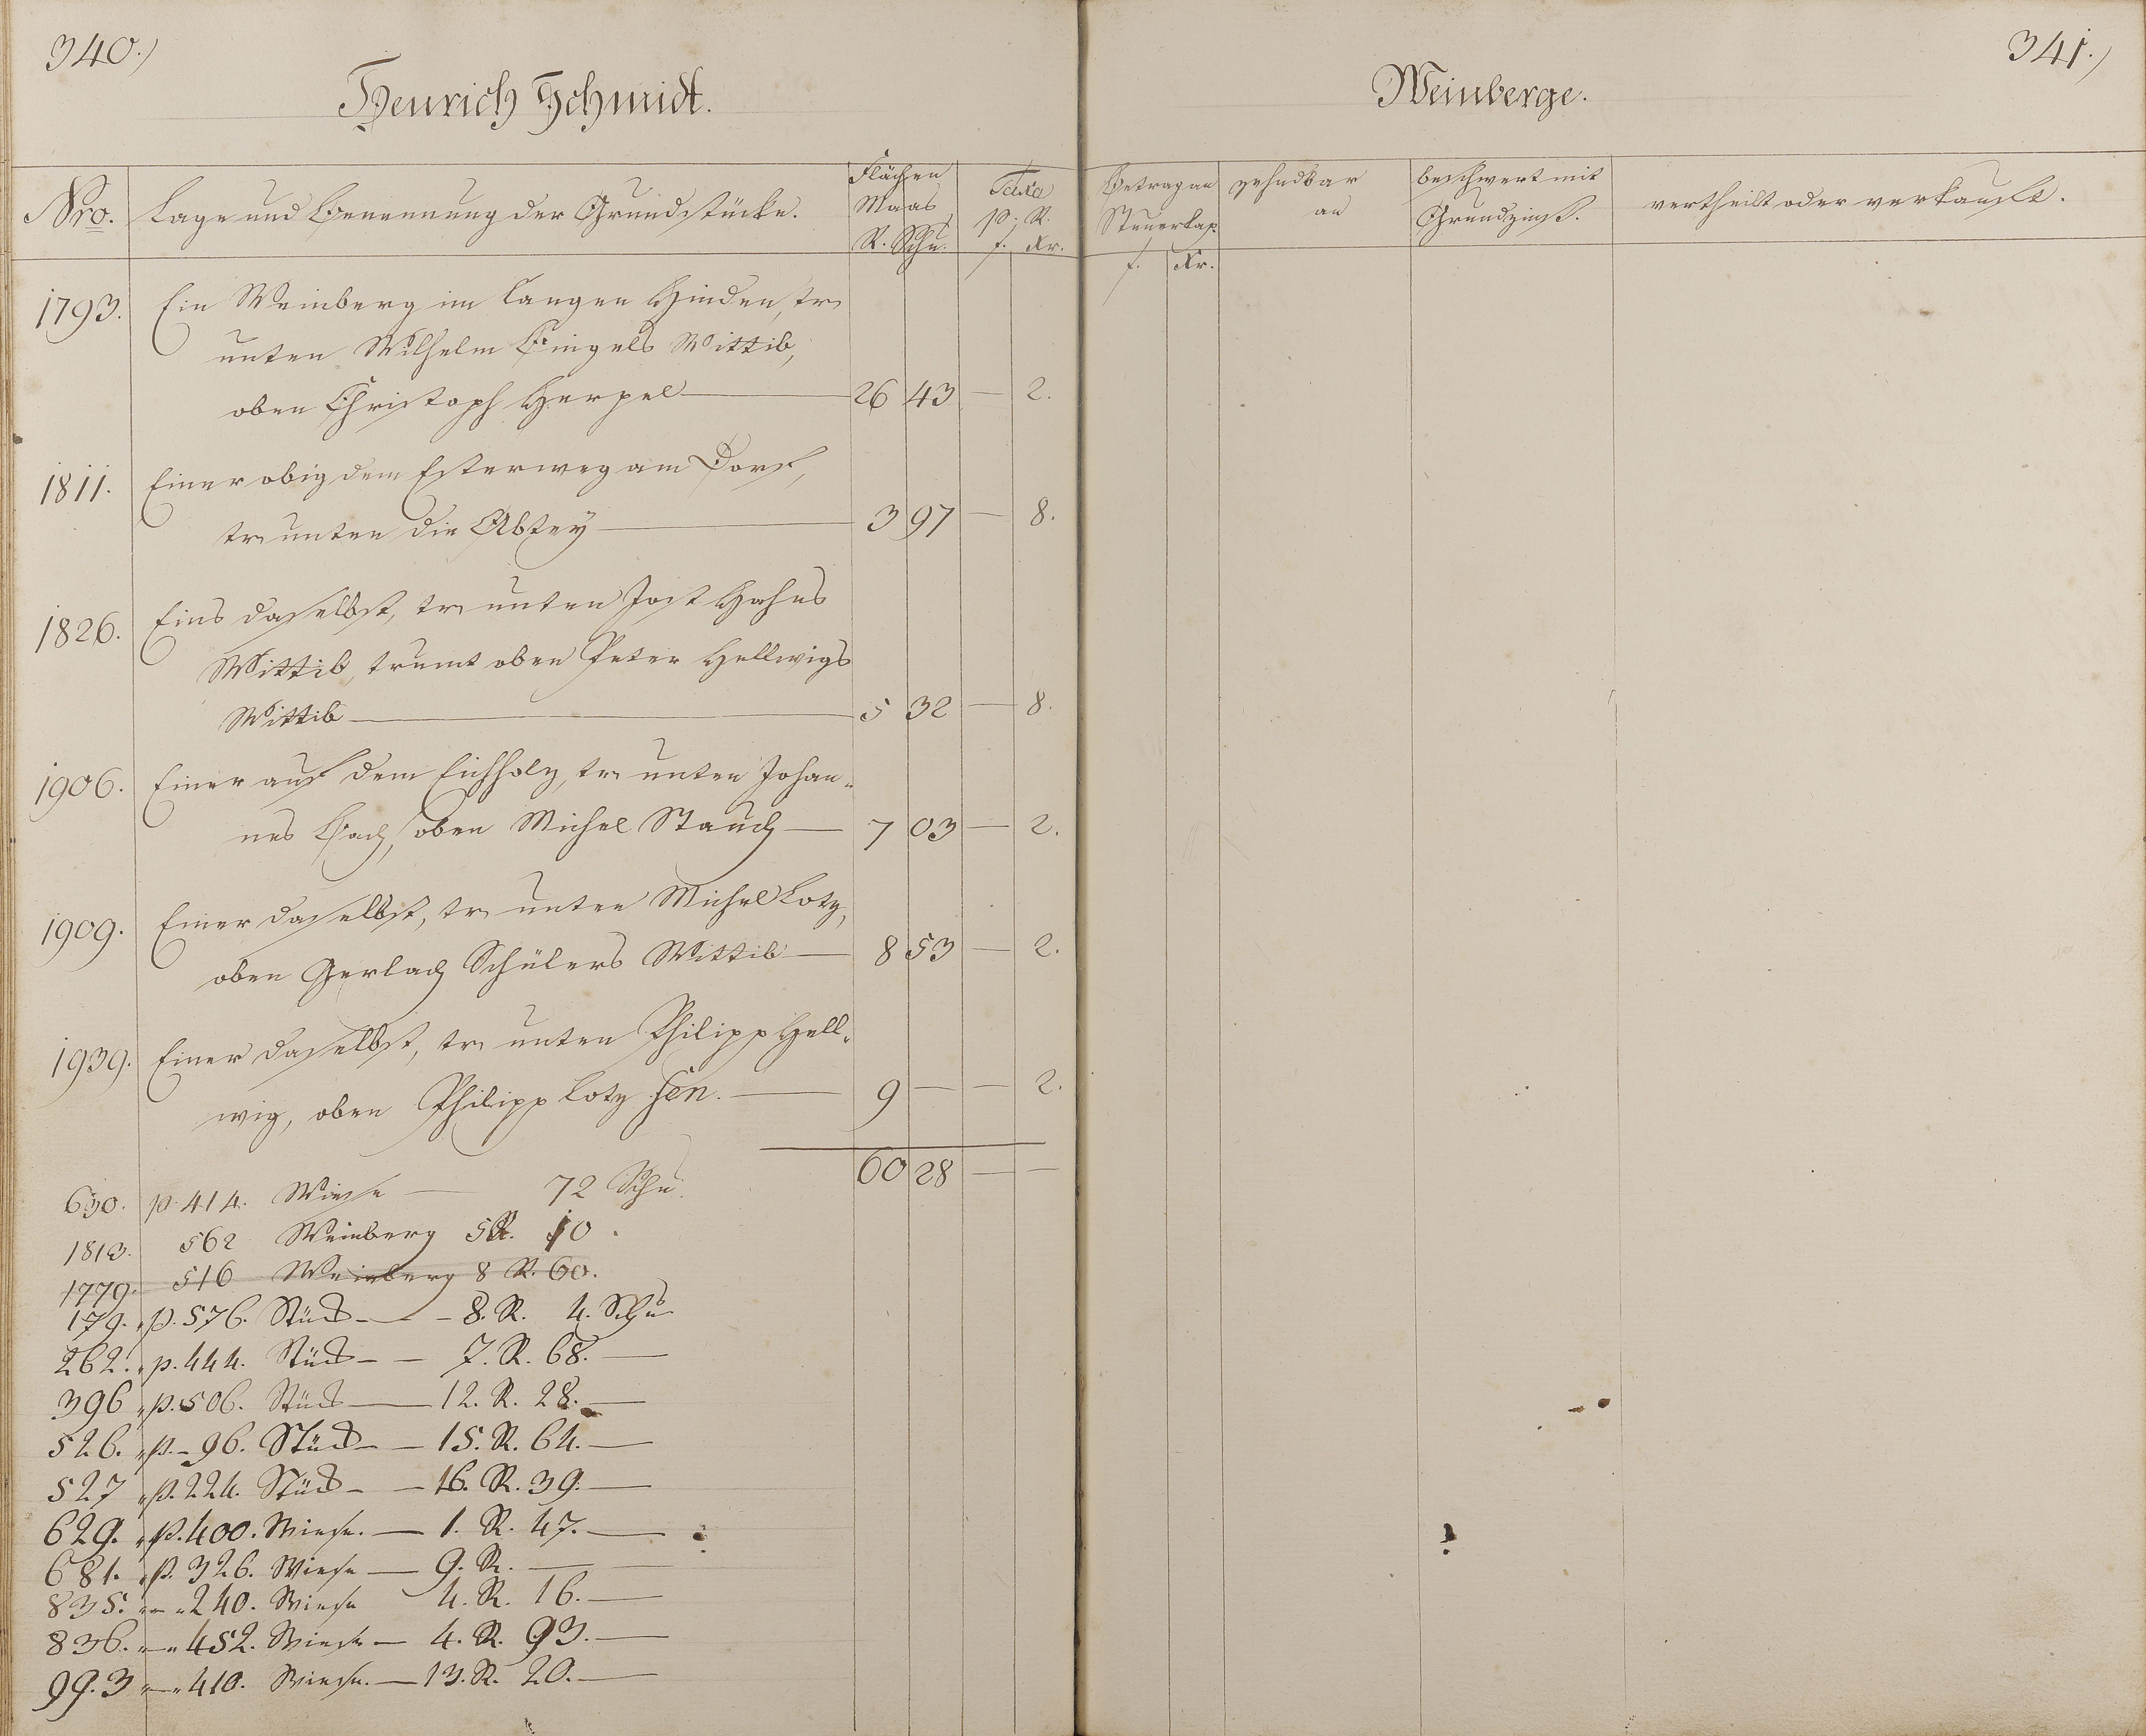 340.)
Henrich Schmidt.
Nro. Lage und Benennung der Grundstücke. Flächen Maas R. Schu. Taxa p; R. f. Kr.
1793. Ein Weinberg im langen Hinden, tr
unten Wilhelm Bingels Wittib,
oben Christoph Herpel — 26 43 — 2.
1811. Einer obig dem Esterweg am Dorf,
tr unten die Abtey — 3 97 — 8.
1826. Eins daselbst, tr unten Jost Hahns
Wittib, trumt oben Peter Hellwigs
Wittib — 5 32 — 8.
1906. Einer auf dem Eichholz, tr unten Johan-
nes Bach, oben Michel Stauch — 7 03 — 2.
1909. Einer daselbst, tr unten Michel Lotz,
oben Gerlach Schülers Wittib — 8 53 — 2.
1939. Einer daselbst, tr unten Philipp Hell-
wig, oben Philipp Lotz sen. — 9 — — 2.
60 28 — —
630. p. 414. Wiese — 72 Schu.
1813. 562 Weinberg 5 R. 10.
1779. 516 Weinberg 8 R. 60.
179. " p. 576. Stück — - 8. R. 4. Schu
262. " p. 444. Stück - - 7. R. 68. —
396 " p. 506. Stück — 12. R. 28. —
526. " p. - 96. Stück - — 15. R. 64. —
527 " p. 224. Stück - — 16. R. 39. —
629. " p. 400. Wiese. — 1. R. 47. —
681. " p. 326. Wiese — 9. R. —
835. " — " 240. Wiese 4. R. 16. —
836. " — " 452. Wiese — 4. R. 93. —
993 " — " 410. Wiese. — 13. R. 20. —
341.)
Weinberge.
Betrag an Steuerkap. f. Kr. zehndbar an beschwert mit Grundzinß. vertheilt oder verkauft.